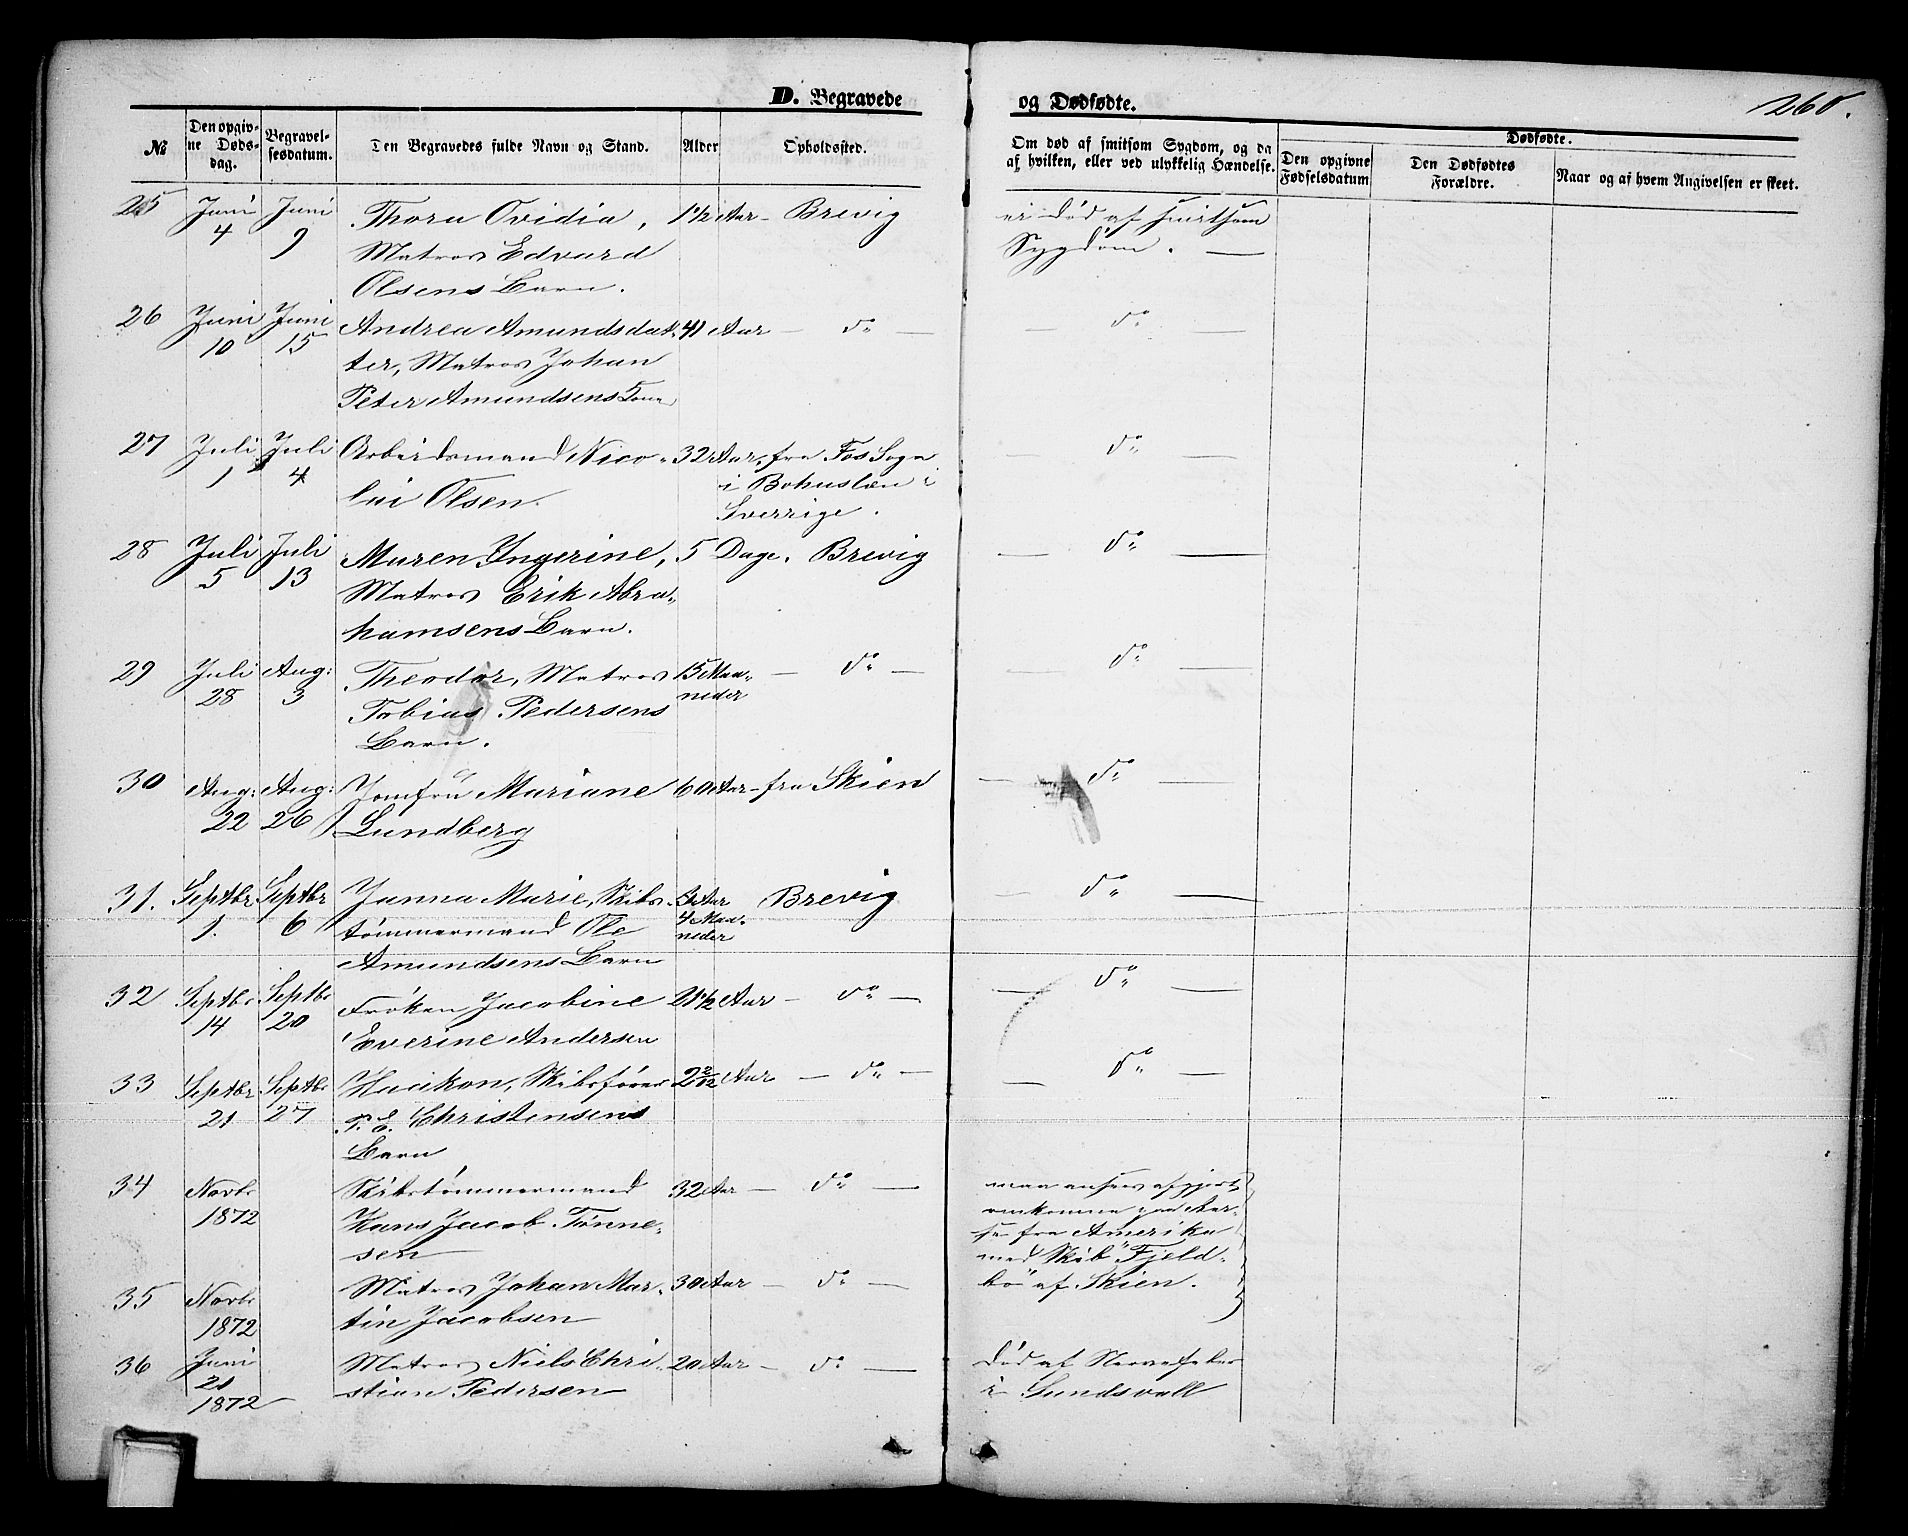 D. Begravede
og Dødfødte.
260.
№
Den opgivne Dødsdag.
Begravelsesdatum.
Den Begravedes fulde Navn og Stand.
Alder
Opholdssted.
Om død af smitsom Sygdom, og da
af hvilken, eller ved ulykkelig Hændelse.
Dødfødte.
Den opgivne
Fødselsdatum
Den Dødfødtes
Forældre.
Naar og af hvem Angivelsen er skeet.
25 Juni 4 Juni 9 Thora Ovidia, 1 1/2 Aar - Brevig
Matros Edvard
Olsens Barn.
ei død af smitsom
Sygdom. —
26 Juni 10 Juni 15 Andrea Amundsdat- 41 Aar — d° —
ter, Matros Johan
Peter Amundsens Kone
— d° —
27 Juli 1 Juli 4 Arbeidsmand Nico- 32 Aar, fra Fos Sogn
lai Olsen. i Bohuslæn i
Sverrige.
d° —
28 Juli 5 Juli 13 Maren Ingerine, 5 Dage. Brevig
Matros Erik Abra-
hamsens Barn.
— d° —
29 Juli 28 Aug: 3 Theodor, Matros 15 Maa- — d° —
Tobias Pedersens neder
Barn.
— d° —
30 Aug: 22 Aug: 26 Jomfru Mariane 60 Aar - fra Skien
Lundberg
— d° —
31. Septbr 1. Septbr 6 Janna Marie, Skibs- 3 Aar Brevig
tømmermand Ole 4 Maa-
neder
Amundsens Barn
— d° —
32 Septbr 14 Septbr 20 Frøken Jacobine 21 1/2 Aar — d° —
Everine Andersen
— d° —
33 Septbr 21 Septbr 27 Haakon, Skibsfører 2 2/12 Aar — d° —
P. E. Christensens
Barn
— d° —
34 Novbr 1872 Skibstømmermand 32 Aar — d° —
Hans Jacob Tønne-
sen
maa ansees afgjort
omkomne paa
fra Amerika
med Skib "Fjeld-
bo" af Skien.
35 Novbr 1872 Matros Johan Mar- 30 Aar — d° —
tin Jacobsen
36 Juni 21 1872 Matros Niels Chri- 20 Aar — d° —
stian Pedersen
Død af Nervefeber
i Sundsvall